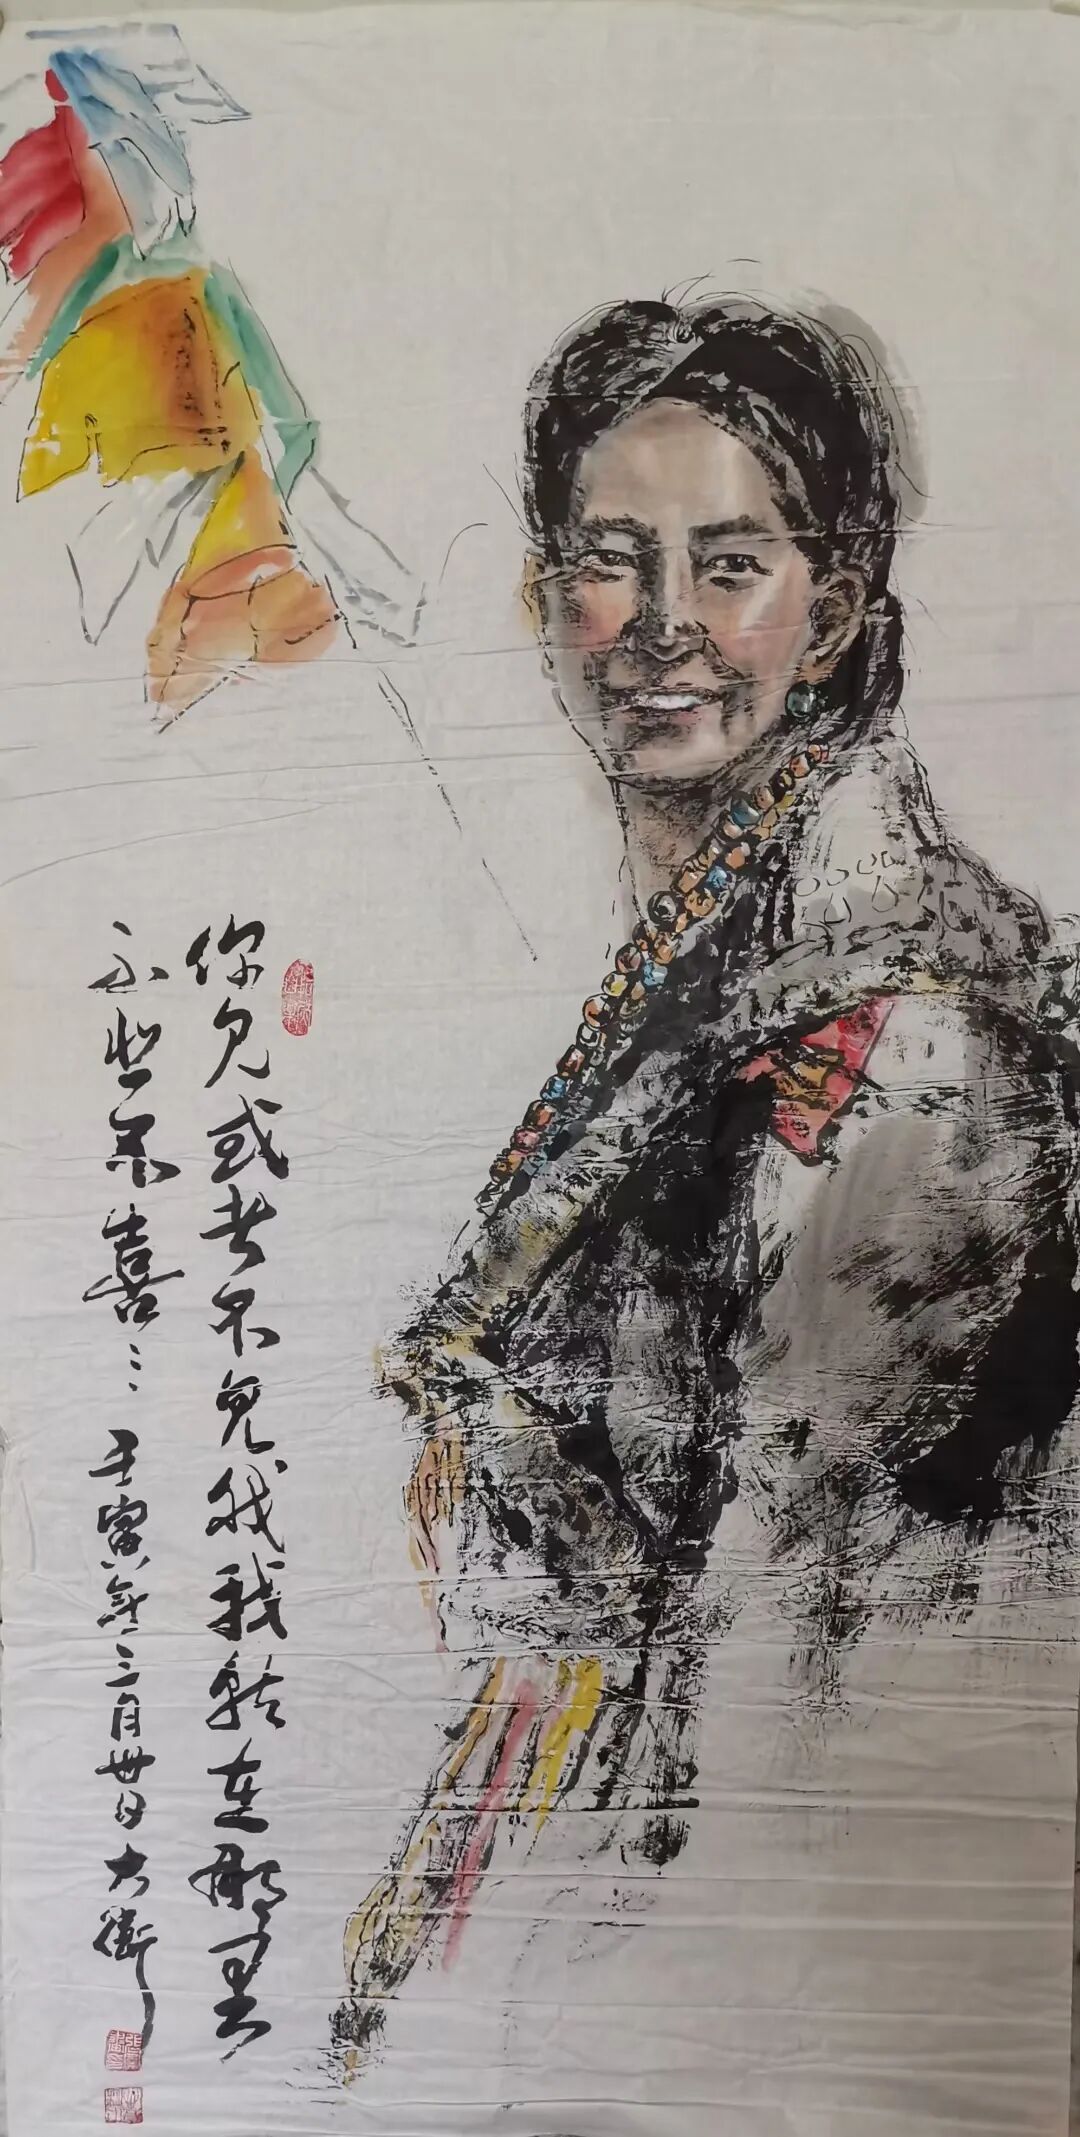 你见或者不见我我就在那里
不悲不喜：： 壬寅年三月卅日大衛